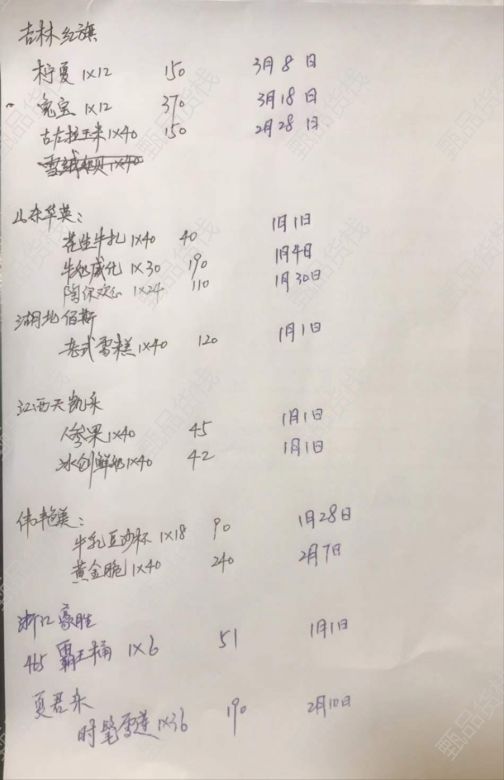 吉林红旗
柠夏 1×12 150 3月8日
兔宝 1×12 370 3月18日
古左拉玉米 1×40 150 2月28日
雪绒 1×40
山东华英：
花生牛扎 1×40 40 1月1日
牛奶威化 1×30 190 1月4日
1×24 110 1月30日
湖北佰斯
老式雪糕 1×40 120 1月1日
江西天凯乐
人参果 1×40 45 1月1日
冰创鲜奶 1×40 42 1月1日
伟叶艳美：
牛乳豆沙杯 1×18 90 1月28日
黄金脆 1×40 240 2月7日
浙江豪胜
465 霸王桶 1×6 51 1月1日
夏君来
时髦雪莲 1×36 190 2月10日
甄品货栈